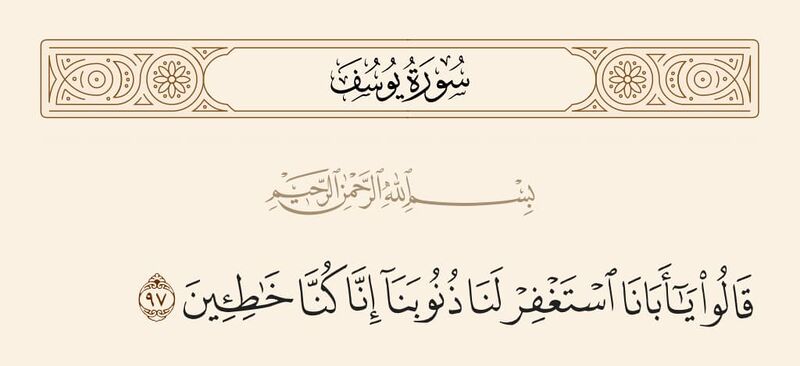 سُورَةُ يُوسُفَ
بِسْمِ ٱللَّهِ ٱلرَّحْمَٰنِ ٱلرَّحِيمِ
قَالُوا۟ يَـٰٓأَبَانَا ٱسْتَغْفِرْ لَنَا ذُنُوبَنَآ إِنَّا كُنَّا خَـٰطِـِٔينَ ٩٧